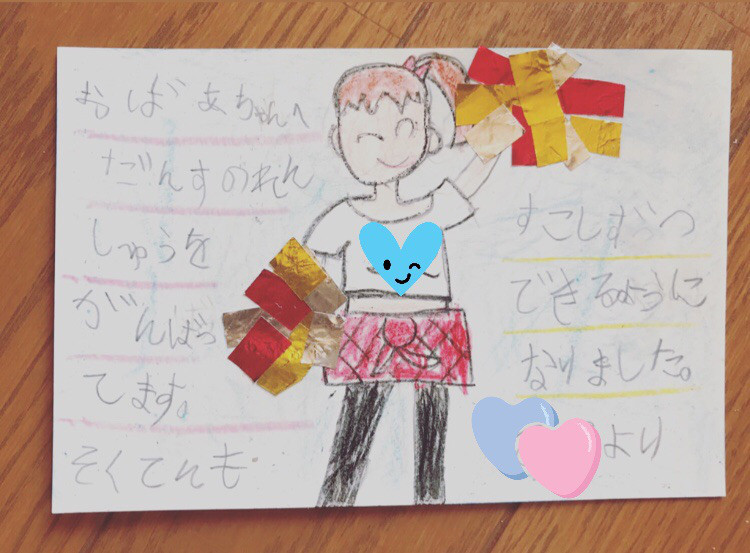 おばあちゃんへ
だんすのれん
しゅうを
がんばっ
てます。
そくてんも
すこしずつ
できるように
なりました。
より